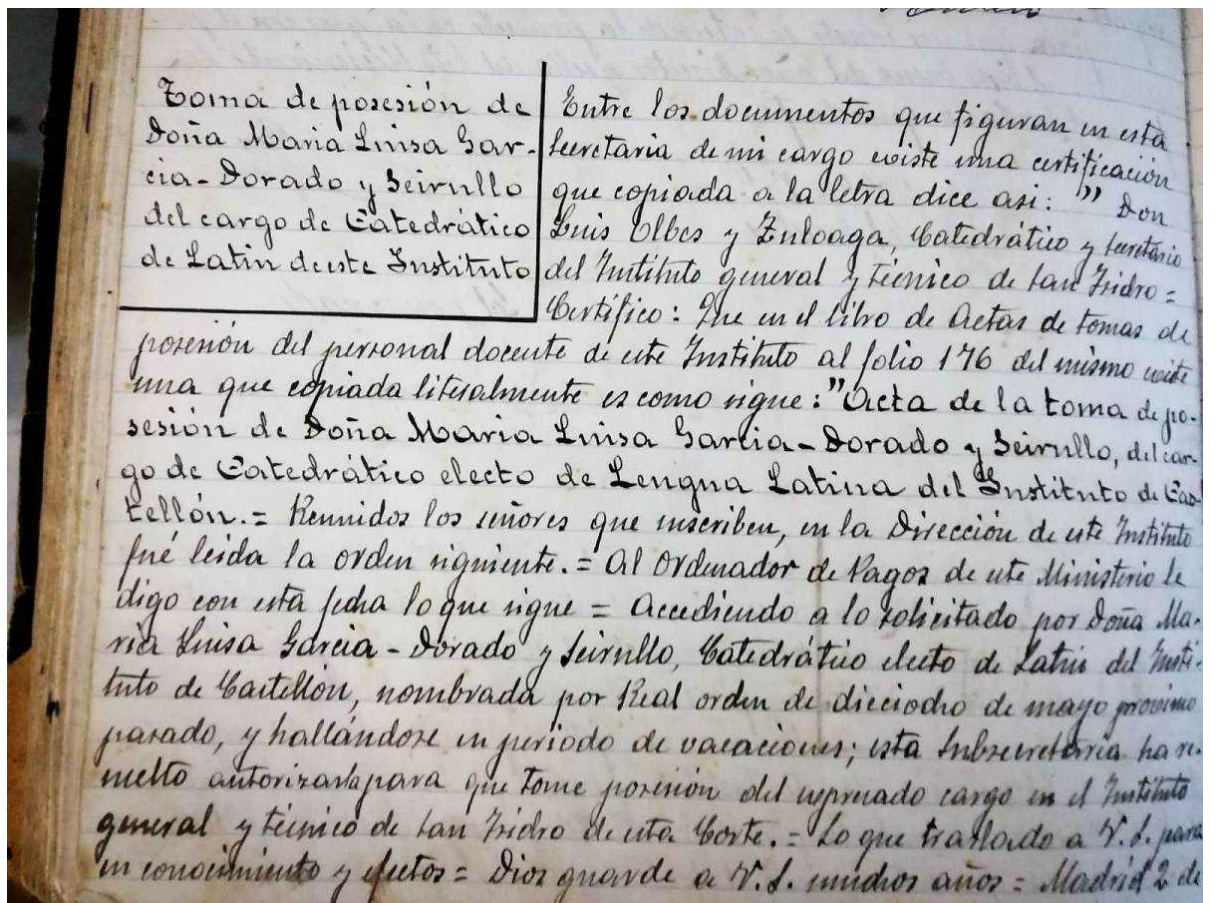 Toma de posesión de
Doña Maria Luisa Gar-
cia-Dorado y Seirullo
del cargo de Catedrático
de Latin de este Instituto
Entre los documentos que figuran en esta
Secretaria de mi cargo existe una certificación
que copiada a la letra dice asi: " Don
Luis Olbes y Zuloaga, Catedrático y Secretario
del Instituto general y técnico de San Isidro =
Certifico: Que en el libro de Actas de tomas de
posesión del personal docente de este Instituto al folio 176 del mismo existe
una que copiada literalmente es como sigue: "Acta de la toma de po-
sesión de Doña Maria Luisa Garcia-Dorado y Seirullo, del car-
go de Catedrático electo de Lengua Latina del Instituto de Cas-
tellón.= Reunidos los señores que suscriben, en la Dirección de este Instituto
fué leida la orden siguiente.= Al Ordenador de Pagos de este Ministerio le
digo con esta fecha lo que sigue = Accediendo a lo solicitado por Doña Ma-
ria Luisa Garcia-Dorado y Seirullo, Catedrático electo de Latin del Insti-
tuto de Castellón, nombrada por Real orden de dieciocho de mayo próximo
pasado, y hallándose en periodo de vacaciones; esta Subsecretaria ha re-
suelto autorizarla para que tome posesión del expresado cargo en el Instituto
general y técnico de San Isidro de esta Corte.= Lo que traslado a V.S. para
su conocimiento y efectos = Dios guarde a V.S. muchos años = Madrid 2 de